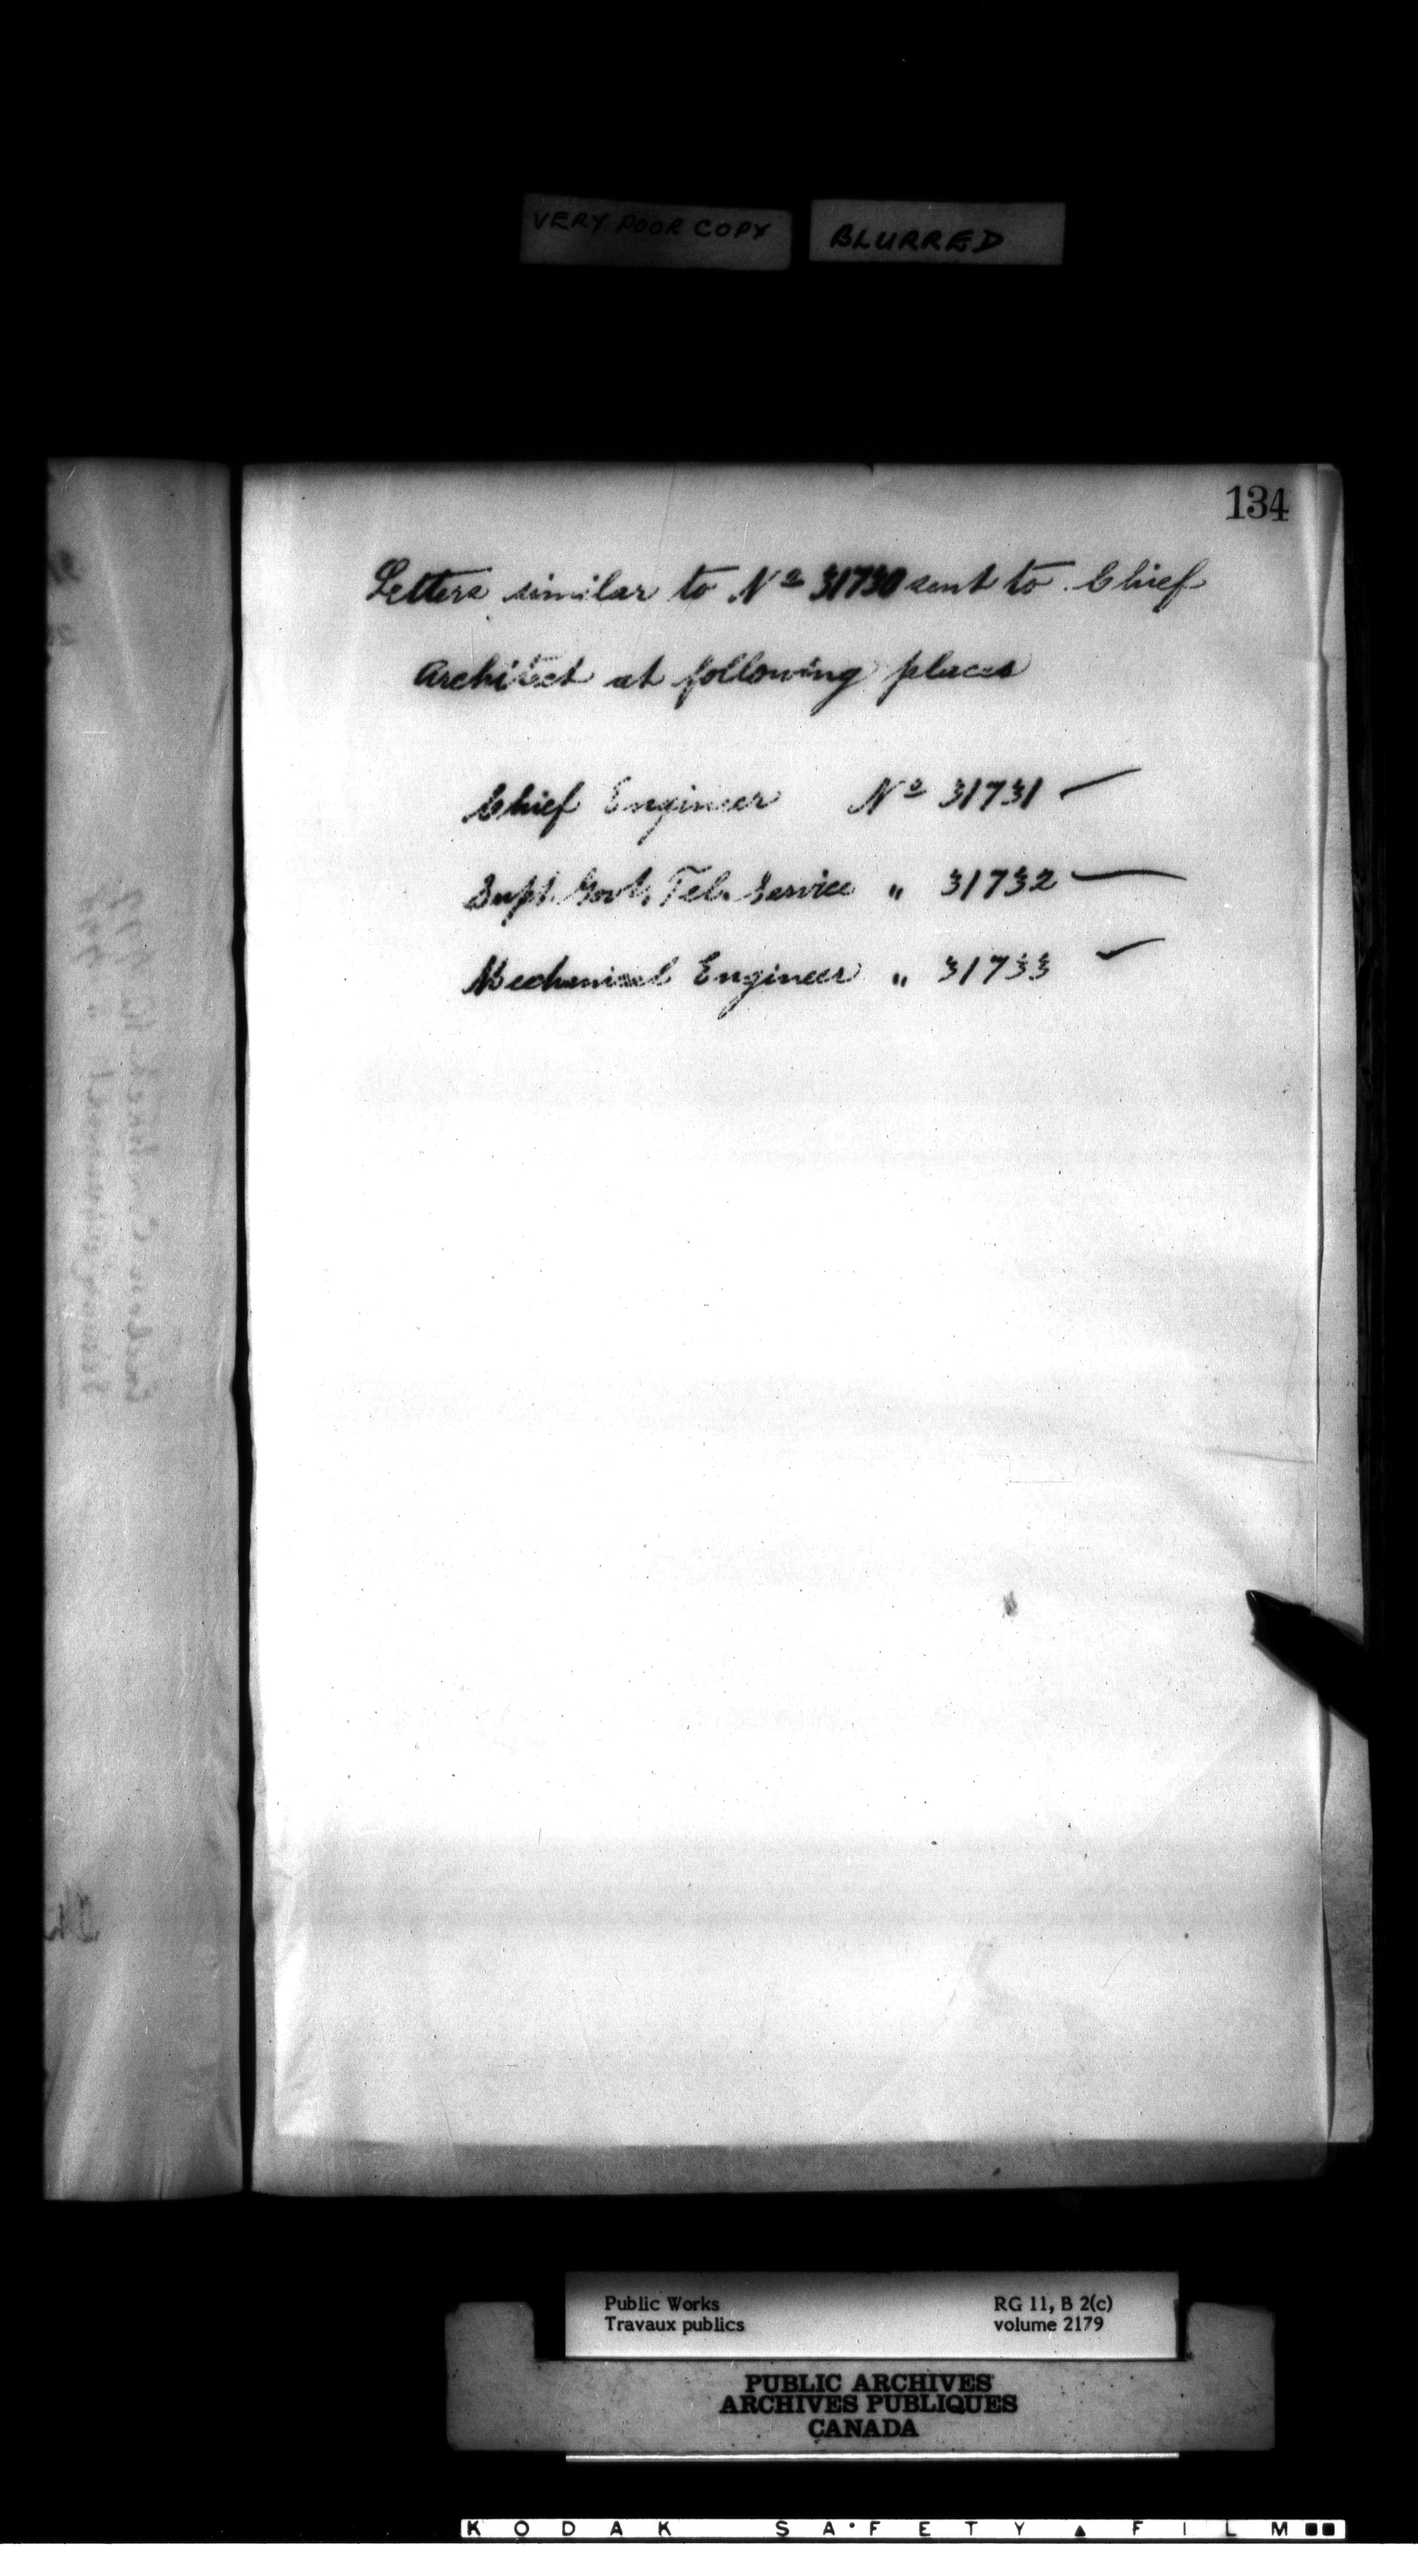 VERY POOR COPY BLURRED
134
Letters similar to Nº 31730 sent to Chief
Architect at following places
Chief Engineer Nº 31731
Supt. Govt. Tel. Service " 31732
Mechanical Engineer " 31733
Public Works RG 11, B 2(c)
Travaux publics volume 2179
PUBLIC ARCHIVES
ARCHIVES PUBLIQUES
CANADA
KODAK SAFETY FILM